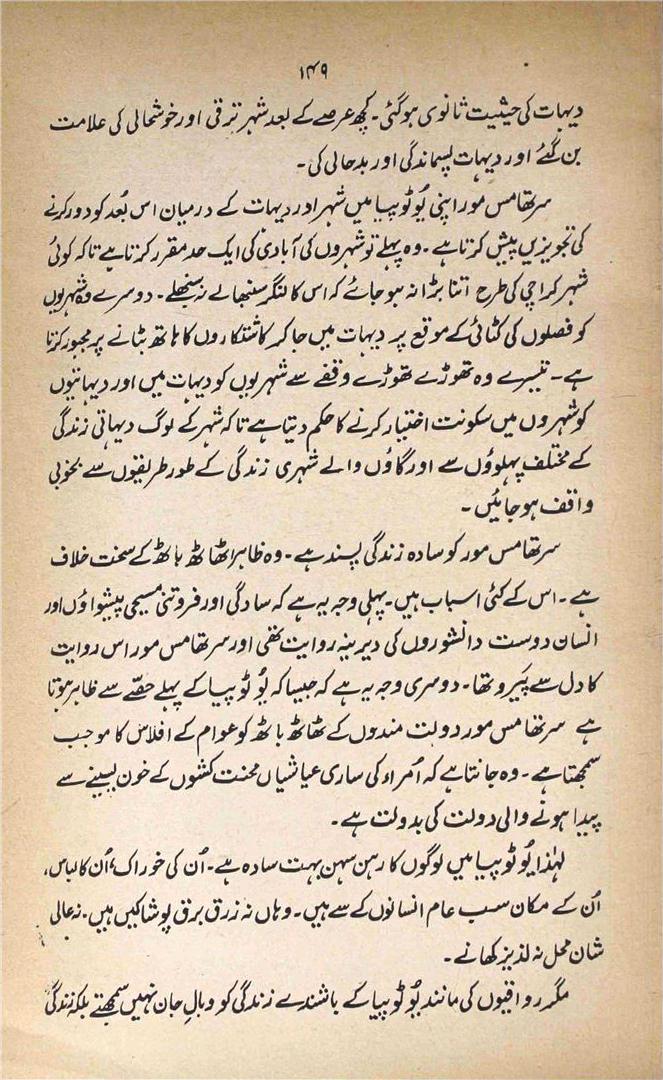 ۱۴۹
دیہات کی حیثیت ثانوی ہو گئی۔ کچھ عرصے کے بعد شہر ترقی اور خوشحالی کی علامت
بن گئے اور دیہات پسماندگی اور بدحالی کی۔
سر تھامس مور اپنی یُوٹوپیا میں شہر اور دیہات کے درمیان اس بُعد کو دور کرنے
کی تجویزیں پیش کرتا ہے۔ وہ پہلے تو شہروں کی آبادی کی ایک حد مقرر کرتا ہے تاکہ کوئی
شہر کراچی کی طرح اتنا بڑا نہ ہو جائے کہ اس کا لنگر سنبھالے نہ سنبھلے۔ دوسرے وہ شہریوں
کو فصلوں کی کٹائی کے موقع پر دیہات میں جا کر کاشتکاروں کا ہاتھ بٹانے پر مجبور کرتا
ہے۔ تیسرے وہ تھوڑے تھوڑے وقفے سے شہریوں کو دیہات میں اور دیہاتیوں
کو شہروں میں سکونت اختیار کرنے کا حکم دیتا ہے تاکہ شہر کے لوگ دیہاتی زندگی
کے مختلف پہلوؤں سے اور گاؤں والے شہری زندگی کے طور طریقوں سے بخوبی
واقف ہو جائیں۔
سر تھامس مور کو سادہ زندگی پسند ہے۔ وہ ظاہرا ٹھاٹھ باٹھ کے سخت خلاف
ہے۔ اس کے کئی اسباب ہیں۔ پہلی وجہ یہ ہے کہ سادگی اور فروتنی مسیحی پیشواؤں اور
انسان دوست دانشوروں کی دیرینہ روایت تھی اور سر تھامس مور اس روایت
کا دل سے پَیرو تھا۔ دوسری وجہ یہ ہے کہ جیسا کہ یُوٹوپیا کے پہلے حصّے سے ظاہر ہوتا
ہے سر تھامس مور دولت مندوں کے ٹھاٹھ باٹھ کو عوام کے افلاس کا موجب
سمجھتا ہے۔ وہ جانتا ہے کہ اُمراء کی ساری عیاشیاں محنت کشوں کے خون پسینے سے
پیدا ہونے والی دولت کی بدولت ہے۔
لہٰذا یُوٹوپیا میں لوگوں کا رہن سہن بہت سادہ ہے۔ اُن کی خوراک، اُن کا لباس،
اُن کے مکان سب عام انسانوں کے سے ہیں۔ وہاں نہ زرق برق پوشاکیں ہیں۔ نہ عالی
شان محل نہ لذیز کھانے۔
مگر رواقیوں کی مانند یُوٹوپیا کے باشندے زندگی کو وبالِ جان نہیں سمجھتے بلکہ زندگی